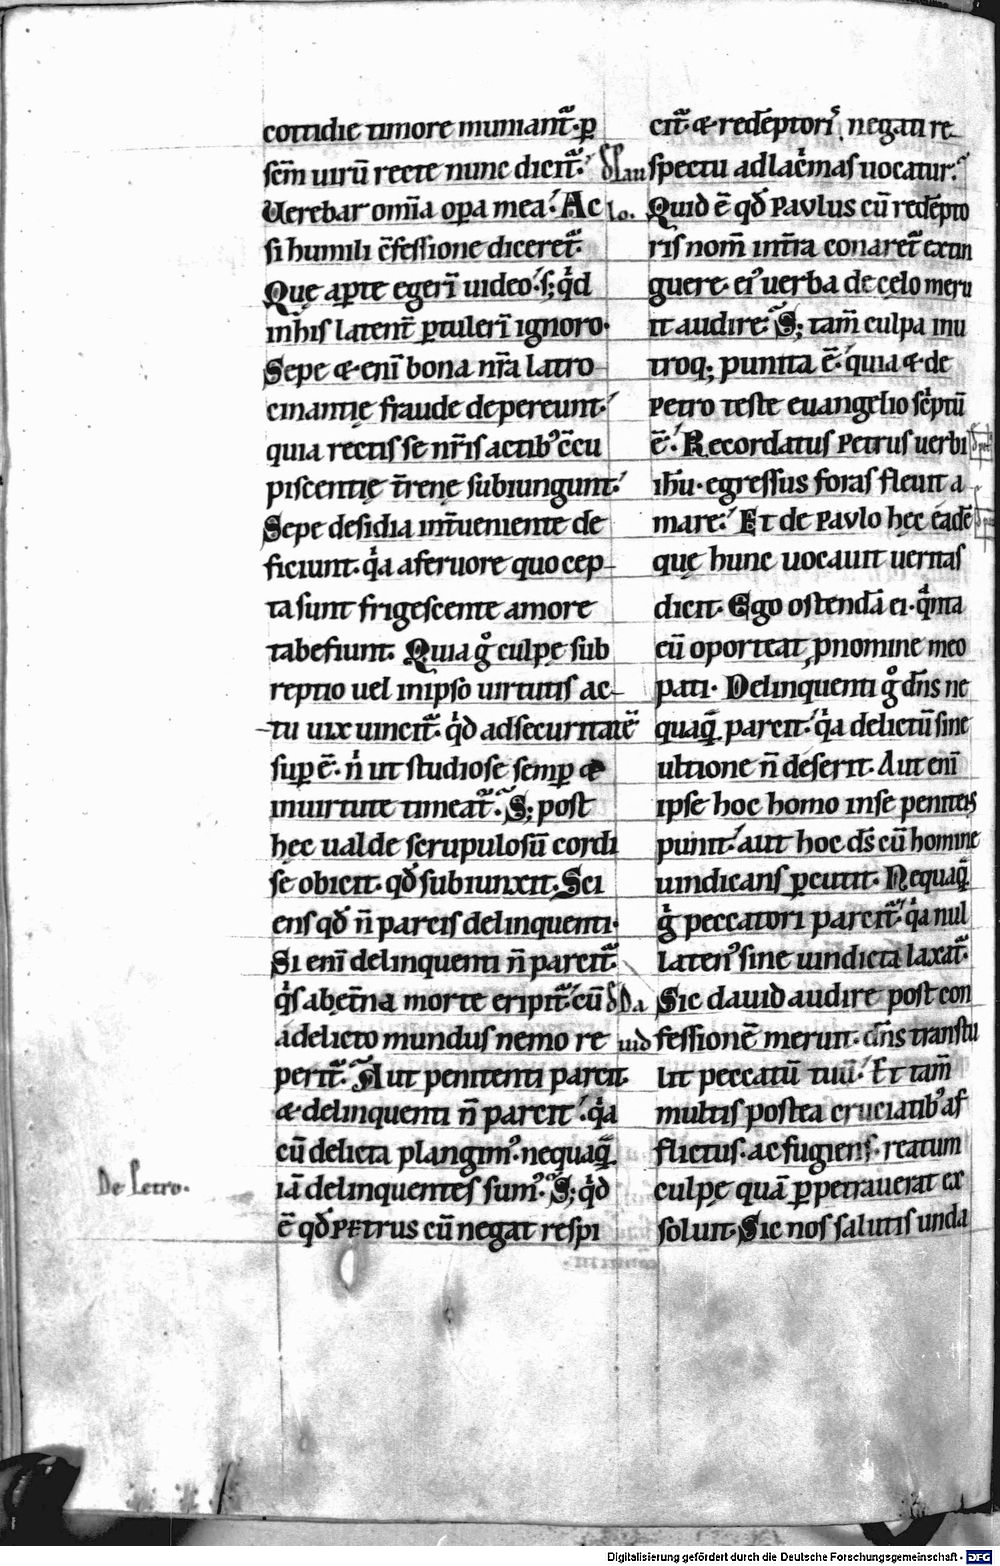 cottidie timore muniant᷑·ꝑ
ſem̄ uirū recte nunc dicit᷑.
Uerebar om̄ia oꝑa mea. Ac
ſi humili c̄feſſione diceret᷑.
Quę aꝑte egeri̅ uideo. ſ; qͥd
in hiſ latent̄ ꝑtuleri̅ ignoro.
Sepe & eni̅ bona nr̄a latro
cinantię fraude depereunt.
quia rectiſ ſe nr̄iſ actib; c̄cu
piſcentię t̄renę ſubiungunt.
Sepe deſidia int̄ueniente de
ficiunt. qͥa a feruore quo cep
ta ſunt frigeſcente amore
tabefiunt. Quia gͦ culpę ſub
reptio uel in ipſo uirtutiſ ac-
tu uix uincit᷑. qͥd ad ſecuritatē
ſuꝑ ē. nͥ ut ſtudioſe ſemꝑ &
in uirtute timeat᷑. S; poſt
hęc ualde ſcrupuloſū cordi
ſe obicit. qd̄ ſubiunxit. Sci
enſ qd̄ n̄ parciſ delinquenti.
Si eni̅ delinquenti n̄ parcit᷑.
qͥſ ab ęt̄na morte eripit᷑. cū
a delicto munduſ nemo re
perit᷑. Aut penitenti parcit
& delinquenti n̄ parcit. qͥa
cū delicta plangimꝰ. nequaꝗ̄
iā delinquenteſ ſumꝰ. S; qͥd
ē qd̄ PETrus cū negat reſpi
De Petro.
Pau
lo.
Da
uid
cit᷑ & redēptoriſ negati re
ſpectu ad lac̄maſ uocatur.
Quid ē qd̄ Pavlus cū redēpto
riſ nom̄ in t̄ra conaret᷑ extin
guere. eiꝰ uerba de cęlo meru
it audire. S; tam̄ culpa in u
troq; punita ē. quia & de
Petro teſte euangelio ſc̄ptū
ē. Recordatuſ Petruſ uerbi
ih̄u. egreſſus foraſ fleuit a
mare. Et de Pavlo hęc eadē
quę hunc uocauit ueritaſ
dicit. Ego oſtendā ei. qͣnta
eū oporteat ꝓ nomine meo
pati. Delinquenti gͦ dn̄s ne
quaꝗ̄ parcit. qͥa delictū ſine
ultione n̄ deſerit. Aut eni̅
ipſe hoc homo in ſe penitenſ
punit. aut hoc dſ̄ cū homine
uindicanſ ꝑcutit. Nequaꝗ̄
gͥ peccatori parcit᷑. qͥa nul
latenꝰ ſine uindicta laxat᷑.
Sic dauid audire poſt con
feſſionē meruit. dn̄s tranſtu
lit peccatū tuū. Et tam̄
multiſ poſtea cruciatib; af
flictuſ. ac fugienſ. reatum
culpę quā ꝑpetrauerat ex
ſoluit. Sic noſ ſalutiſ unda